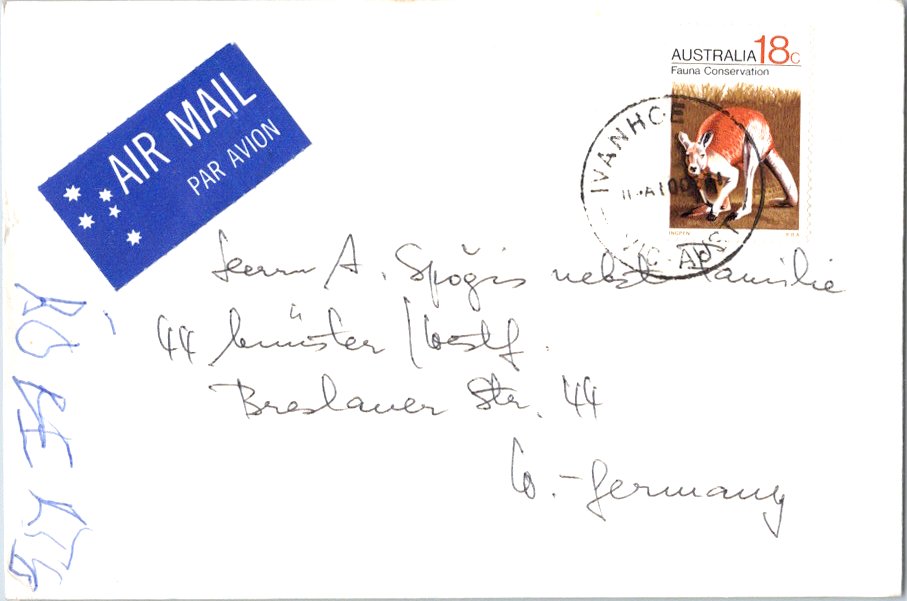 AIR MAIL
PAR AVION
AUSTRALIA 18c
Fauna Conservation
IVANHOE
VIC-AUST
Herrn A. Spóģis nebst Familie
44 Münster/Westf.
Breslauer Str. 44
W.-Germany